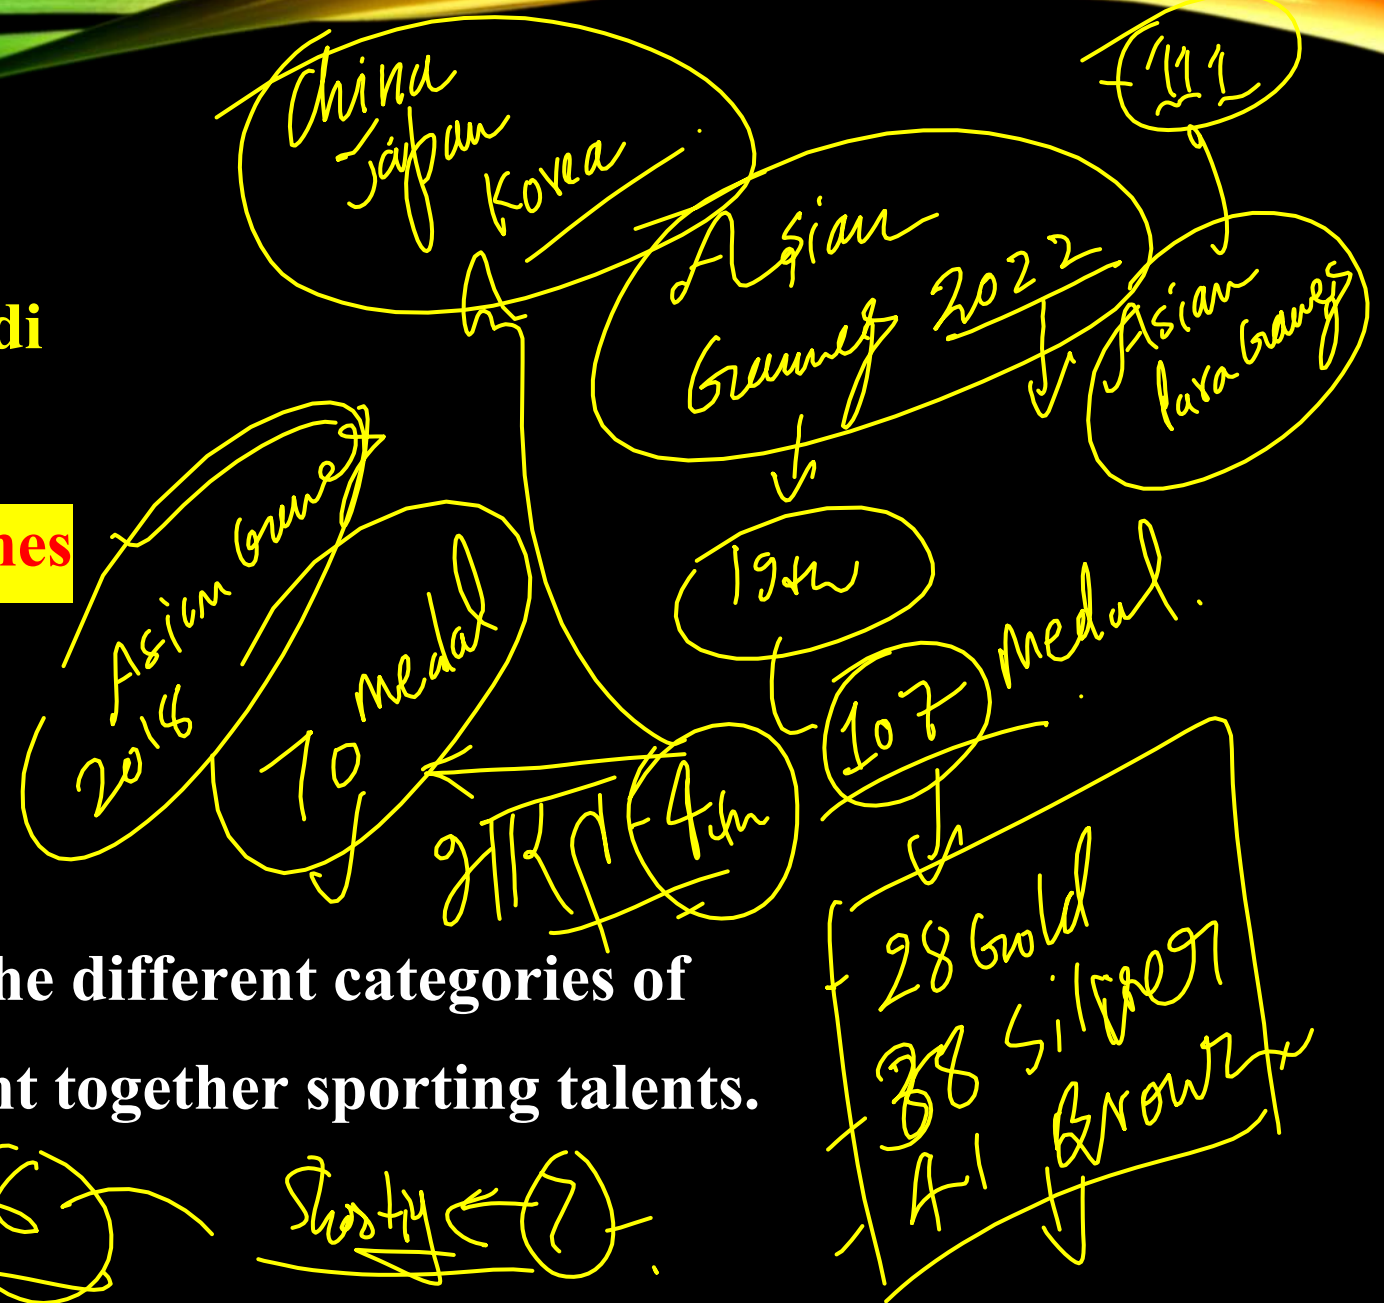 China
Japan
Korea
111
Asian
Games 2022
Asian
Para Games
di
Asian Games
2018
nes
70 medal
19th
107 Medal.
भारत - 4th
28 Gold
38 Silver
41 Bronz
he different categories of
nt together sporting talents.